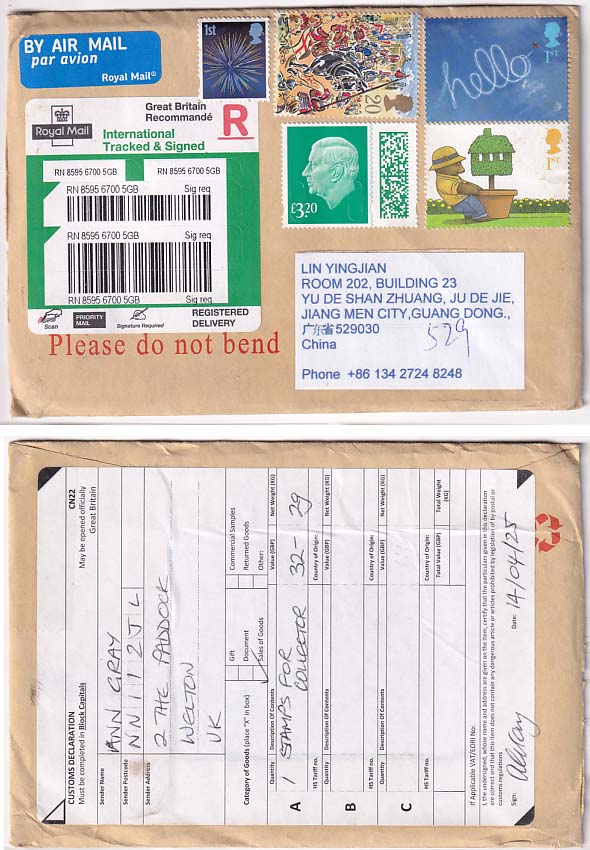 BY AIR MAIL
par avion
Royal Mail®
1st
20
hello
1ST
£3.20
1ST
Royal Mail
Great Britain
Recommandé
R
International
Tracked & Signed
RN 8595 6700 5GB
RN 8595 6700 5GB
RN 8595 6700 5GB Sig req
RN 8595 6700 5GB Sig req
RN 8595 6700 5GB Sig req
Scan
PRIORITY
MAIL
Signature Required
REGISTERED
DELIVERY
Please do not bend
LIN YINGJIAN
ROOM 202, BUILDING 23
YU DE SHAN ZHUANG, JU DE JIE,
JIANG MEN CITY,GUANG DONG.,
广东省529030
China
529
Phone +86 134 2724 8248
CUSTOMS DECLARATION
Must be completed in Block Capitals
May be opened officially
CN22
Great Britain
Sender Name
ANN GRAY
Sender Postcode
NN11 2JL
Sender Address
2 THE PADDOCK
WELTON
UK
Category of Goods (place "X" in box)
Gift
Document
Sales of Goods
Commercial Samples
Returned Goods
Other:
Quantity Description Of Contents Value (GBP) Net Weight (KG)
A
1 STAMPS FOR
COLLECTOR
32-29
HS Tariff no. Country of Origin:
Quantity Description Of Contents Value (GBP) Net Weight (KG)
B
HS Tariff no. Country of Origin:
Quantity Description Of Contents Value (GBP) Net Weight (KG)
C
HS Tariff no. Country of Origin:
Total Value (GBP) Total Weight (KG)
If Applicable VAT/EORI No:
I, the undersigned, whose name and address are given on the item, certify that the particulars given in this declaration
are correct and that this item does not contain any dangerous article or articles prohibited by legislation of by postal or
customs regulations
Sign:
Date: 14/04/25